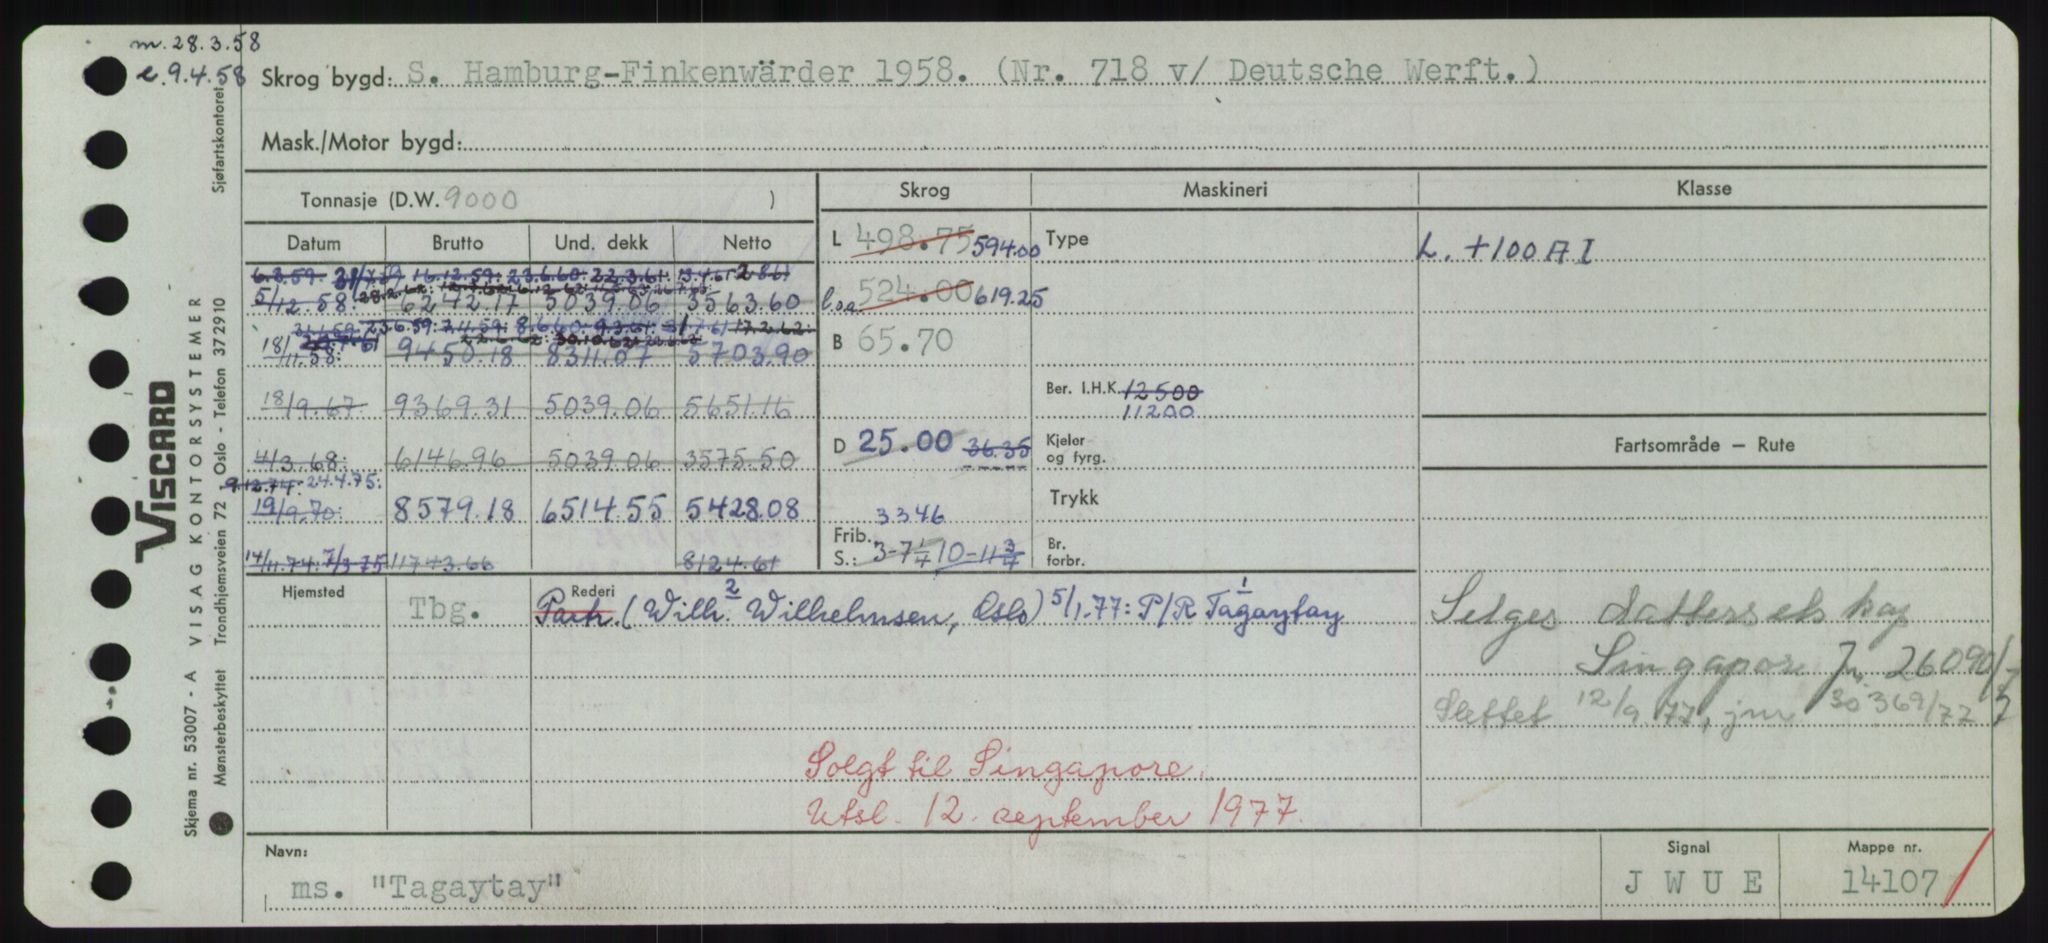 m. 28.3.58
e. 9.4.58
Skrog bygd: S. Hamburg-Finkenwärder 1958. (Nr. 718 v/ Deutsche Werft.)
Mask./Motor bygd:
Tonnasje (D.W. 9000 )
Skrog Maskineri Klasse
Datum Brutto Und. dekk Netto
L 498.75 594.00 Type L. +100 A I
6.3.59 16.12.59: 23.6.60: 22.3.61:
5/12.58 6242.17 5039.06 3563.60
l.o.a. 524.00 619.25
23.6.59: 7.4.59: 8.6.60 9.3.61: 17.2.62:
18/11.58: 9450.18 8311.07 5703.90
B 65.70
18/9.67 9369.31 5039.06 5651.16
Ber. I.H.K. 12500
11200
4/3.68: 6146.96 5039.06 3575.50
D 25.00 36.35
Kjeler og fyrg.
Fartsområde – Rute
9.12.74: 24.4.75:
19/9.70: 8579.18 6514.55 5428.08
Trykk
3346
14/11.74: 7/3 75 11743.66 8124.61
Frib. S.: 3-7 1/4 10-11 3/4
Br. forbr.
Hjemsted Rederi
Tbg. Partr. (Wilh. 2 Wilhelmsen, Oslo) 5/1.77: P/R Tagaytay 1
Selges datterselskap
Singapore Jn. 26090/77
Slettet 12/9 77, jnr 30369/77
Solgt til Singapore.
Utsl. 12. september 1977.
Navn: Signal Mappe nr.
ms. "Tagaytay" J W U E 14107
VISCARD
VISAG KONTORSYSTEMER
Skjema nr. 53007 - A
Mønsterbeskyttet Trondhjemsveien 72 Oslo - Telefon 372910
Sjøfartskontoret